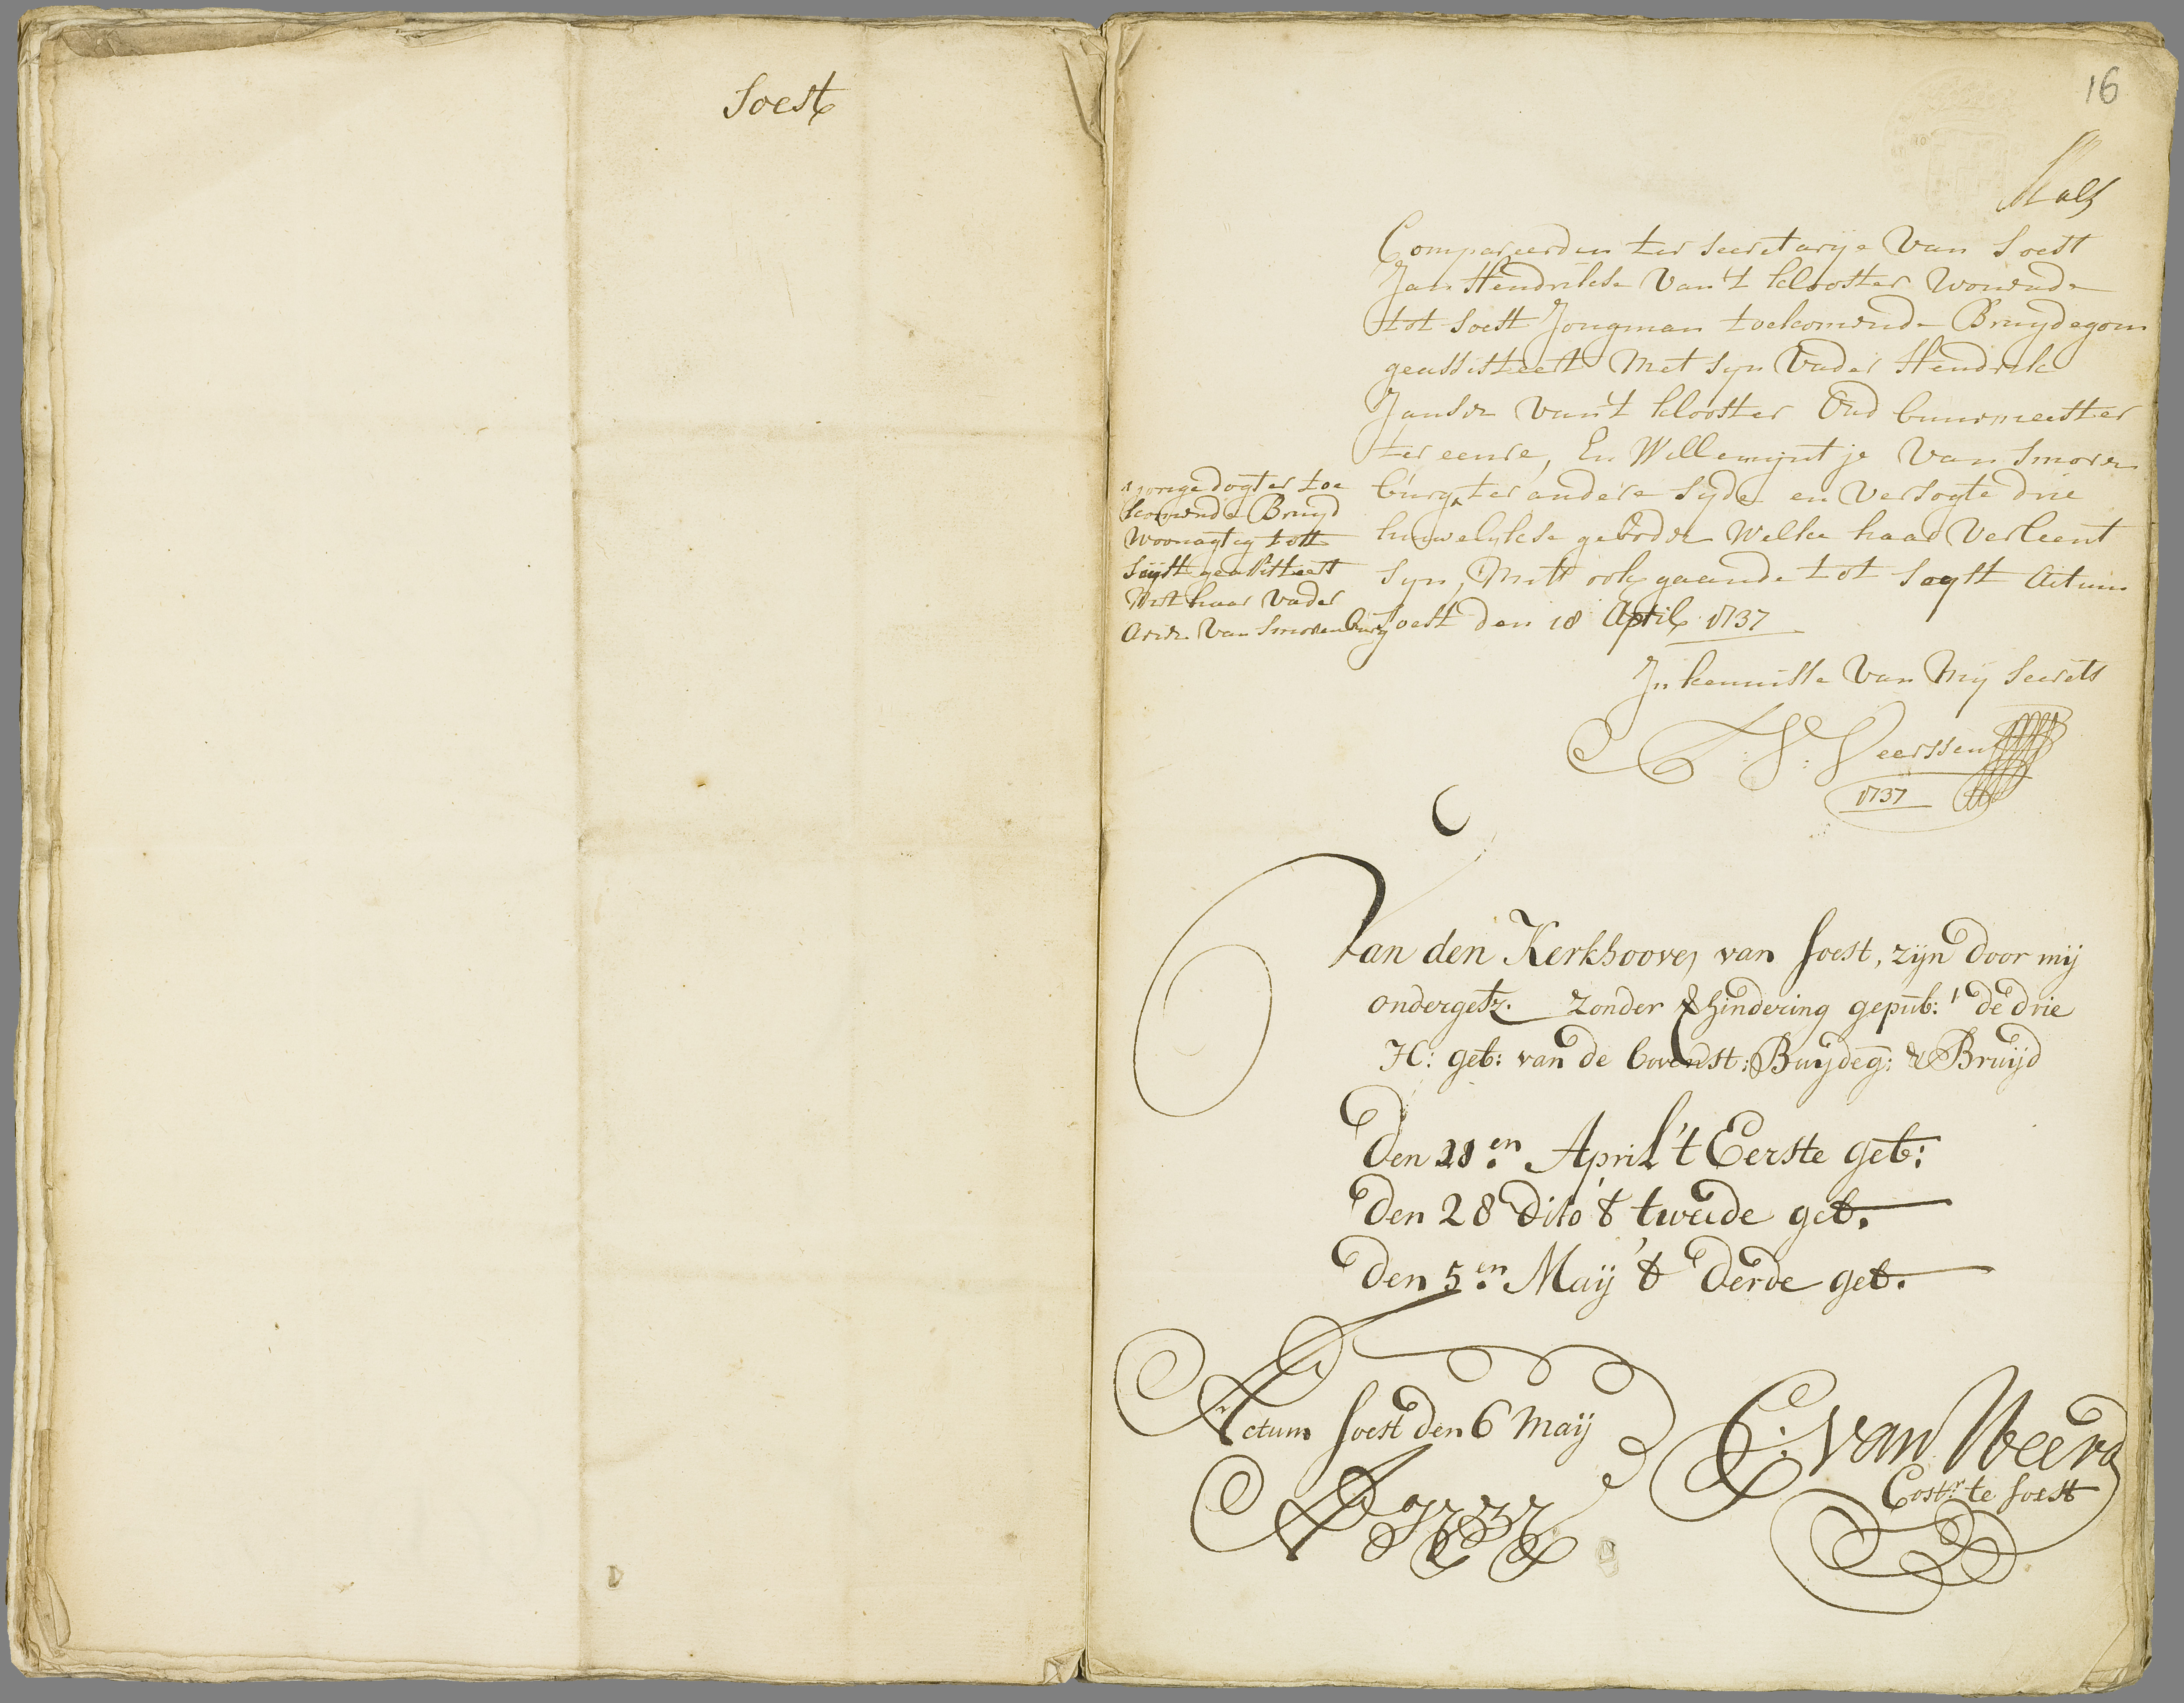 Soest
16
Compareerden ter secretarye van Soest
Jan Hendrikse van 't klooster wonende
tot Soest Jongman toekomende Bruydegom
geassisteert met syn vader Hendrik
Janse van 't klooster oud buurmeester
ter eenre, En Willemyntje van Smoren
burg ^ ter andere syde en versogte drie
huwelykse geboden welke haar verleent
syn, mits ook gaande tot seyst Actum
Soest den 18 April 1737
^ jonge dogter toe
komende Bruyd
woonagtig tott
seyst geassisteert
Met haar vader
Arien van Smorenburg
In kennisse van my secrets
Veerssen
1737
Van den Kerkhoove, van Soest, zijn door mij
ondergetz. zonder verhindering gepub: de drie
H: geb: van de bovenst: Buijdeg: & Bruijd
Den 21en April 't Eerste geb:
Den 28 Dito 't tweede geb.
Den 5en Maij 't Derde geb.
Actum Soest den 6 Maij
A 1737
C: van Weerd
Costr te Soest